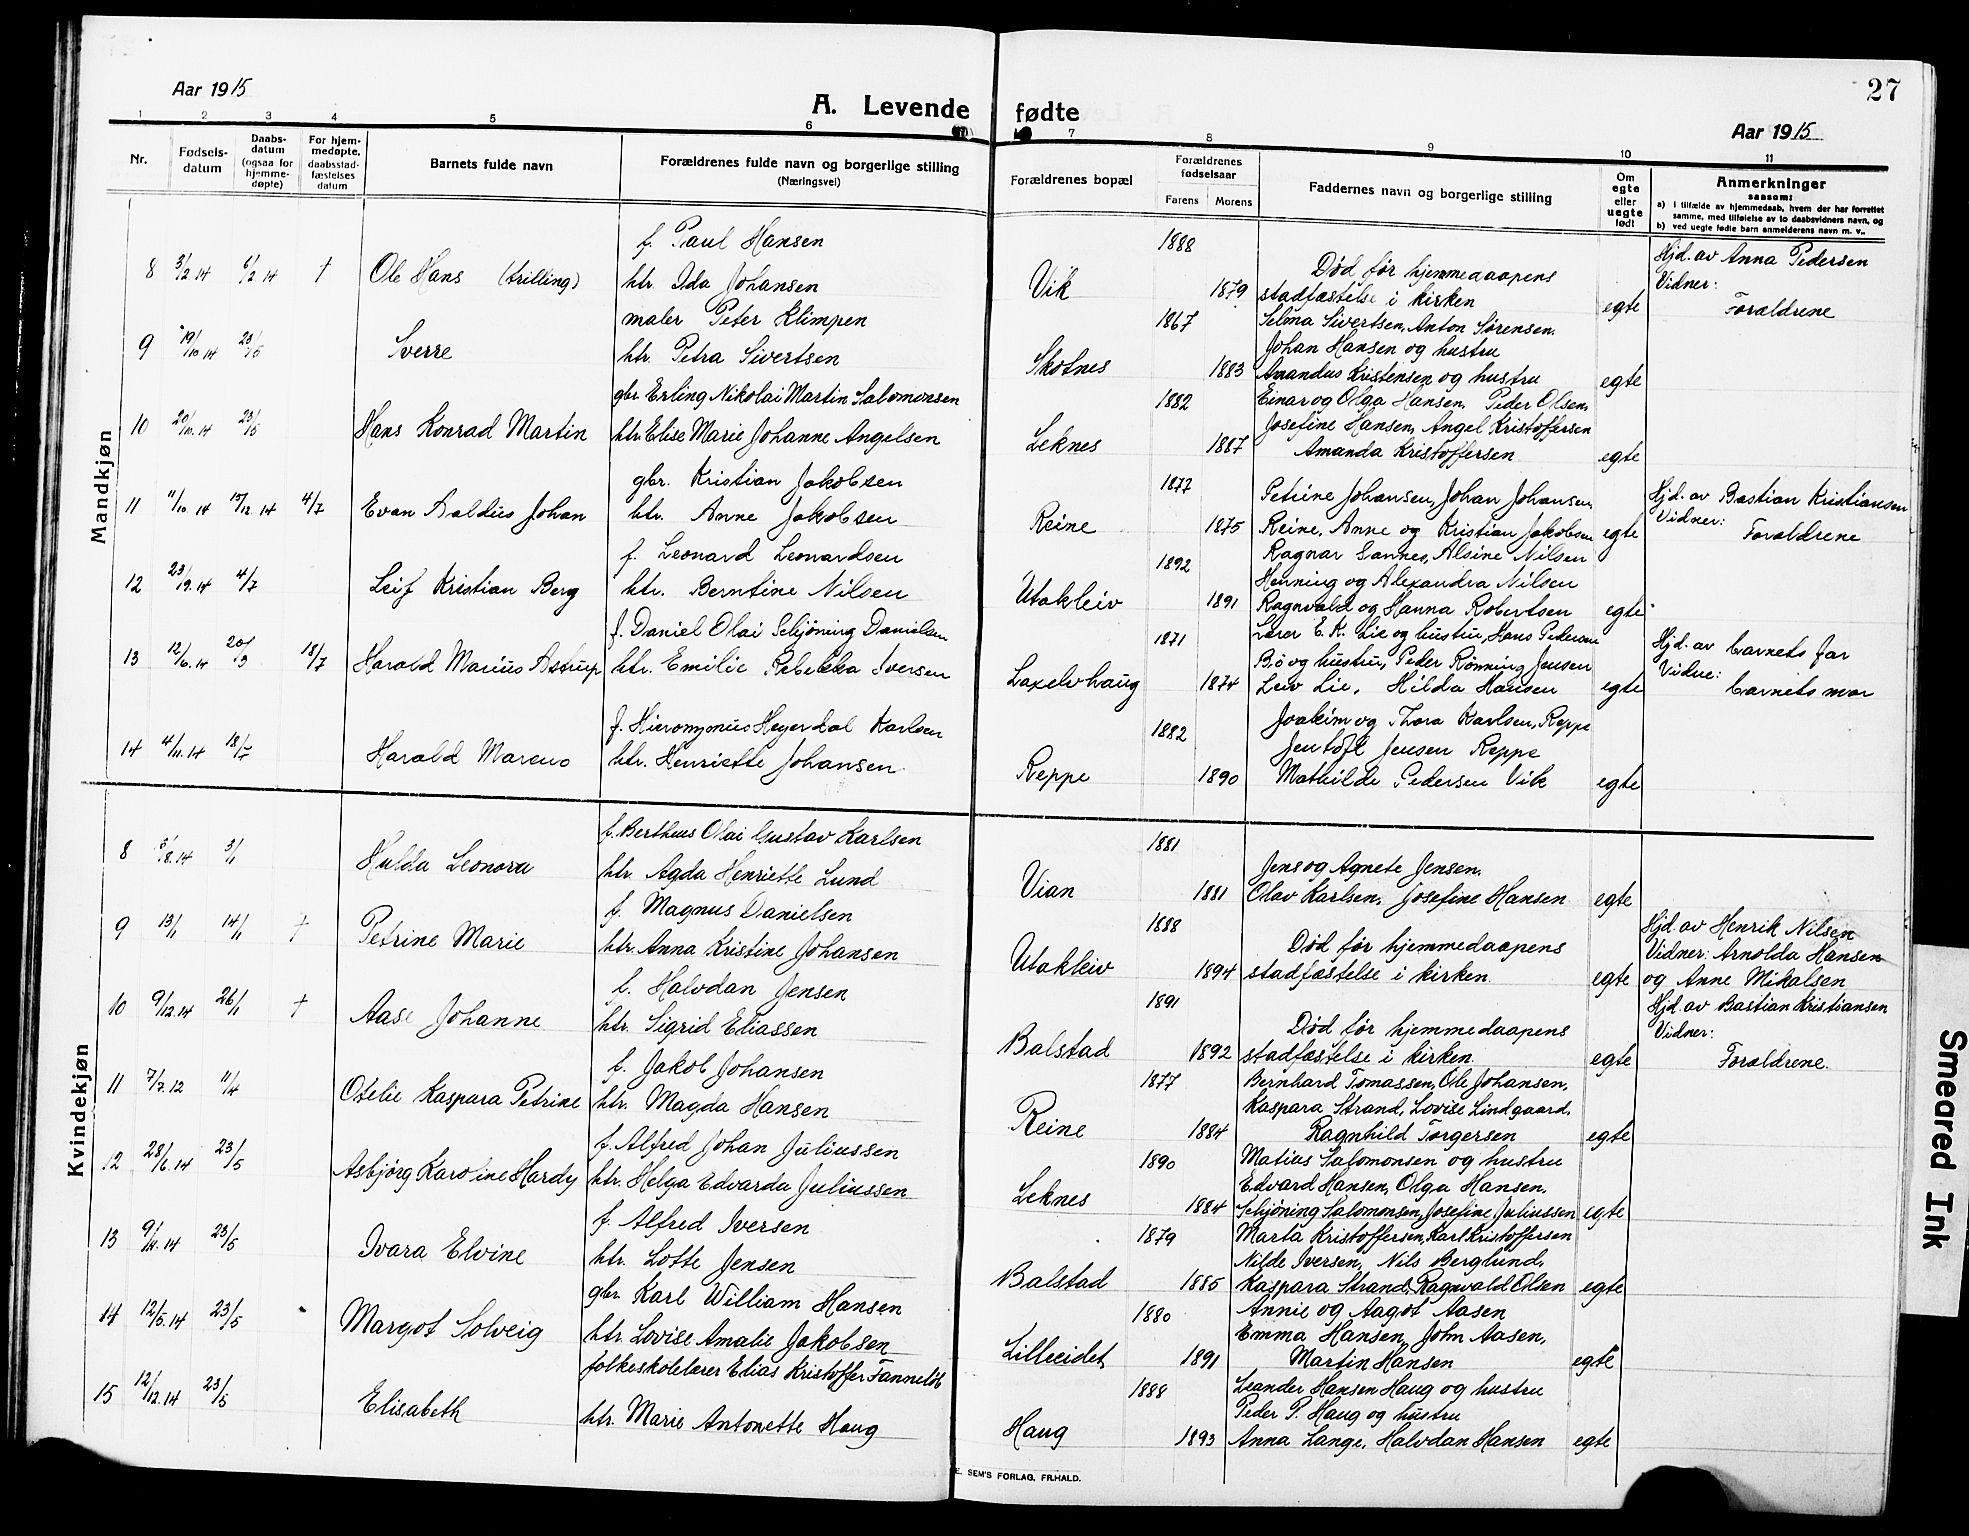 Aar 1915
A. Levende fødte
27
Aar 1915
1 2 3 4 5 6 7 8 9 10 11
Nr.
Fødsels-
datum
Daabs-
datum
(ogsaa for
hjemme-
døpte)
For hjem-
medøpte,
daabsstad-
fæstelses
datum
Barnets fulde navn
Forældrenes fulde navn og borgerlige stilling
(Næringsvei)
Forældrenes bopæl
Forældrenes
fødselsaar
Farens Morens
Faddernes navn og borgerlige stilling
Om
egte
eller
uegte
født
Anmerkninger
saasom:
a) i tilfælde av hjemmedaab, hvem der har forrettet
samme, med tilføielse av to daabsvidners navn, og
b) ved uegte fødte barn anmelderens navn m. v.
Mandkjøn
f. Paul Hansen 1888 Hjd. av Anna Pedersen
8 3/2 14 6/2 14 † Ole Hans (trilling) htr. Ida Johansen Vik 1879 Død før hjemmedaapens
stadfæstelse i kirken egte Vidner:
Forældrene
maler Peter Klimpen 1867 Selma Sivertsen, Anton Sørensen,
9 19/10 14 23/5 Sverre htr. Petra Sivertsen Skotnes 1883 Johan Hansen og hustru
Amandus Kristensen og hustru egte
gbr. Erling Nikolai Martin Salomonsen 1882 Einar og Olga Hansen, Peder Olsen,
10 20/10. 14 23/5 Hans Konrad Martin htr. Elise Marie Johanne Angelsen Leknes 1887 Josefine Hansen, Angel Kristoffersen
Amanda Kristoffersen egte
gbr. Kristian Jakobsen 1877 Petrine Johansen, Johan Johansen Hjd. av Bastian Kristiansen
11 11/10 14 15/12. 14 4/7 Evan Aaldus Johan htr. Anne Jakobsen Reine 1875 Reine, Anne og Kristian Jakobsen egte Vidner:
Forældrene
f. Leonard Leonardsen 1892 Ragnar Sannes, Alsine Nilsen
12 23/9. 14 4/7 Leif Kristian Berg htr. Berntine Nilsen Utakleiv 1891 Henning og Alexandra Nilsen
Ragnvald og Hanna Robertsen egte
f. Daniel Olai Schjöning Danielsen 1871 Lærer E. K. Lie og hustru, Hans Pedersen Hjd. av barnets far
13 12/6. 14 20/3 18/7 Harald Marius Astrup htr. Emilie Rebekka Iversen Laxelvhaug 1874 Bø og hustru, Peder Rønning Jensen
Leiv Lie, Hilda Hansen egte Vidne:
barnets mor
f. Hieronymus Heyerdal Karlsen 1882 Joakim og Thora Karlsen, Reppe
14 4/11. 14 18/7 Harald Marcus htr. Henriette Johansen Reppe 1890 Jentoft Jensen Reppe
Mathilde Pedersen Vik egte
Kvindekjøn
f. Bertheus Olai Gustav Karlsen 1881 Jens og Agnete Jensen,
8 5/8. 14 3/1 Hulda Leonora htr. Agda Henriette Lund Vian 1881 Olav Karlsen, Josefine Hansen egte
f. Magnus Danielsen 1888 Hjd. av Henrik Nilsen
9 13/1 14/1 † Petrine Marie htr. Anna Kristine Johansen Utakleiv 1894 Død før hjemmedaapens
stadfæstelse i kirken egte Vidner: Arnolda Hansen
og Anne Mikalsen
f. Halvdan Jensen 1891 Hjd. av Bastian Kristiansen
10 9/12. 14 26/1 † Aase Johanne htr. Sigrid Eliassen Balstad 1892 Død før hjemmedaapens
stadfæstelse i kirken egte Vidner:
Forældrene.
f. Jakob Johansen 1877 Bernhard Tomassen, Ole Johansen,
11 7/7. 12 11/4 Otelie Kaspara Petrine htr. Magda Hansen Reine 1884 Kaspara Strand, Lovise Lindgaard,
Ragnhild Torgersen egte
f. Alfred Johan Juliussen 1890 Matius Salomonsen og hustru
12 28/6. 14 23/5 Asbjørg Karoline Hardy htr. Helga Edvarda Juliussen Leknes 1884 Edvard Hansen, Olga Hansen,
Schjöning Salomonsen, Josefine Juliussen egte
f. Alfred Iversen 1879 Marta Kristoffersen, Karl Kristoffersen
13 9/11. 14 23/5 Ivara Elvine htr. Lotte Jensen Balstad 1885 Nilde Iversen, Nils Berglund,
Kaspara Strand, Ragnvald Olsen egte
gbr. Karl William Hansen 1880 Annie og Aagot Aasen
14 12/5. 14 23/5 Margot Solveig htr. Lovise Amalie Jakobsen Lilleeidet 1891 Emma Hansen, John Aasen,
Martin Hansen egte
folkeskolelærer Elias Kristoffer Fanneløb 1888 Leander Hansen Haug og hustru
15 12/12. 14 23/5 Elisabeth htr. Marie Antonette Haug Haug 1893 Peder P. Haug og hustru
Anna Lange, Halvdan Hansen egte
E. SEM'S FORLAG, FR.HALD.
Smeared Ink